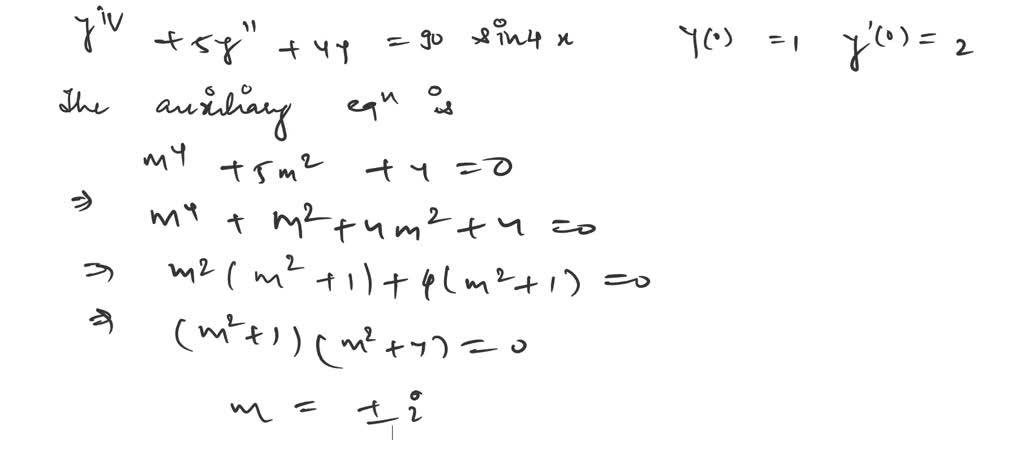 y^iv + 5y'' + 4y = 90 sin4x y(0) = 1 y'(0) = 2
The auxiliary eqⁿ is
m⁴ + 5m² + 4 = 0
⇒ m⁴ + m² + 4m² + 4 = 0
⇒ m²(m² + 1) + 4(m² + 1) = 0
⇒ (m² + 1)(m² + 4) = 0
m = ± i